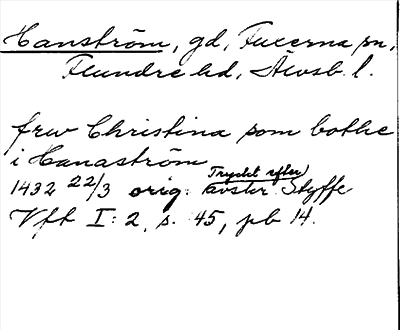 Hanström, gd, Fuxerna sn,
Flundre hd, Älvsb. l.
frw Christina som bothe
i Hanaström
1432 22/3 orig: Tryckt efter) avskr. Styffe
Vft I: 2, s. 45, pb 14.